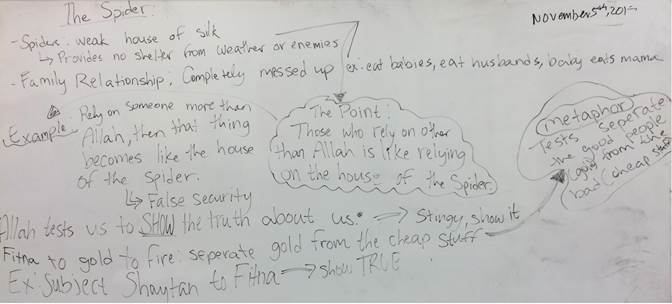 The Spider:
November 5th, 201
- Spiders: weak house of silk
↳ Provides no shelter from weather or enemies
- Family Relationship: Completely messed up ex: eat babies, eat husbands, baby eats mama
Example
Rely on someone more than
Allah, then that thing
becomes like the house
of the spider.
↳ False security
The Point:
Those who rely on other
than Allah is like relying
on the house of the Spider.
metaphor
Tests seperate
the good people
(gold) from the
bad (cheap stuff)
Allah tests us to SHOW the truth about us: → Stingy, show it
Fitna to gold to fire: seperate gold from the cheap stuff
Ex: Subject Shaytan to Fitna → show TRUE